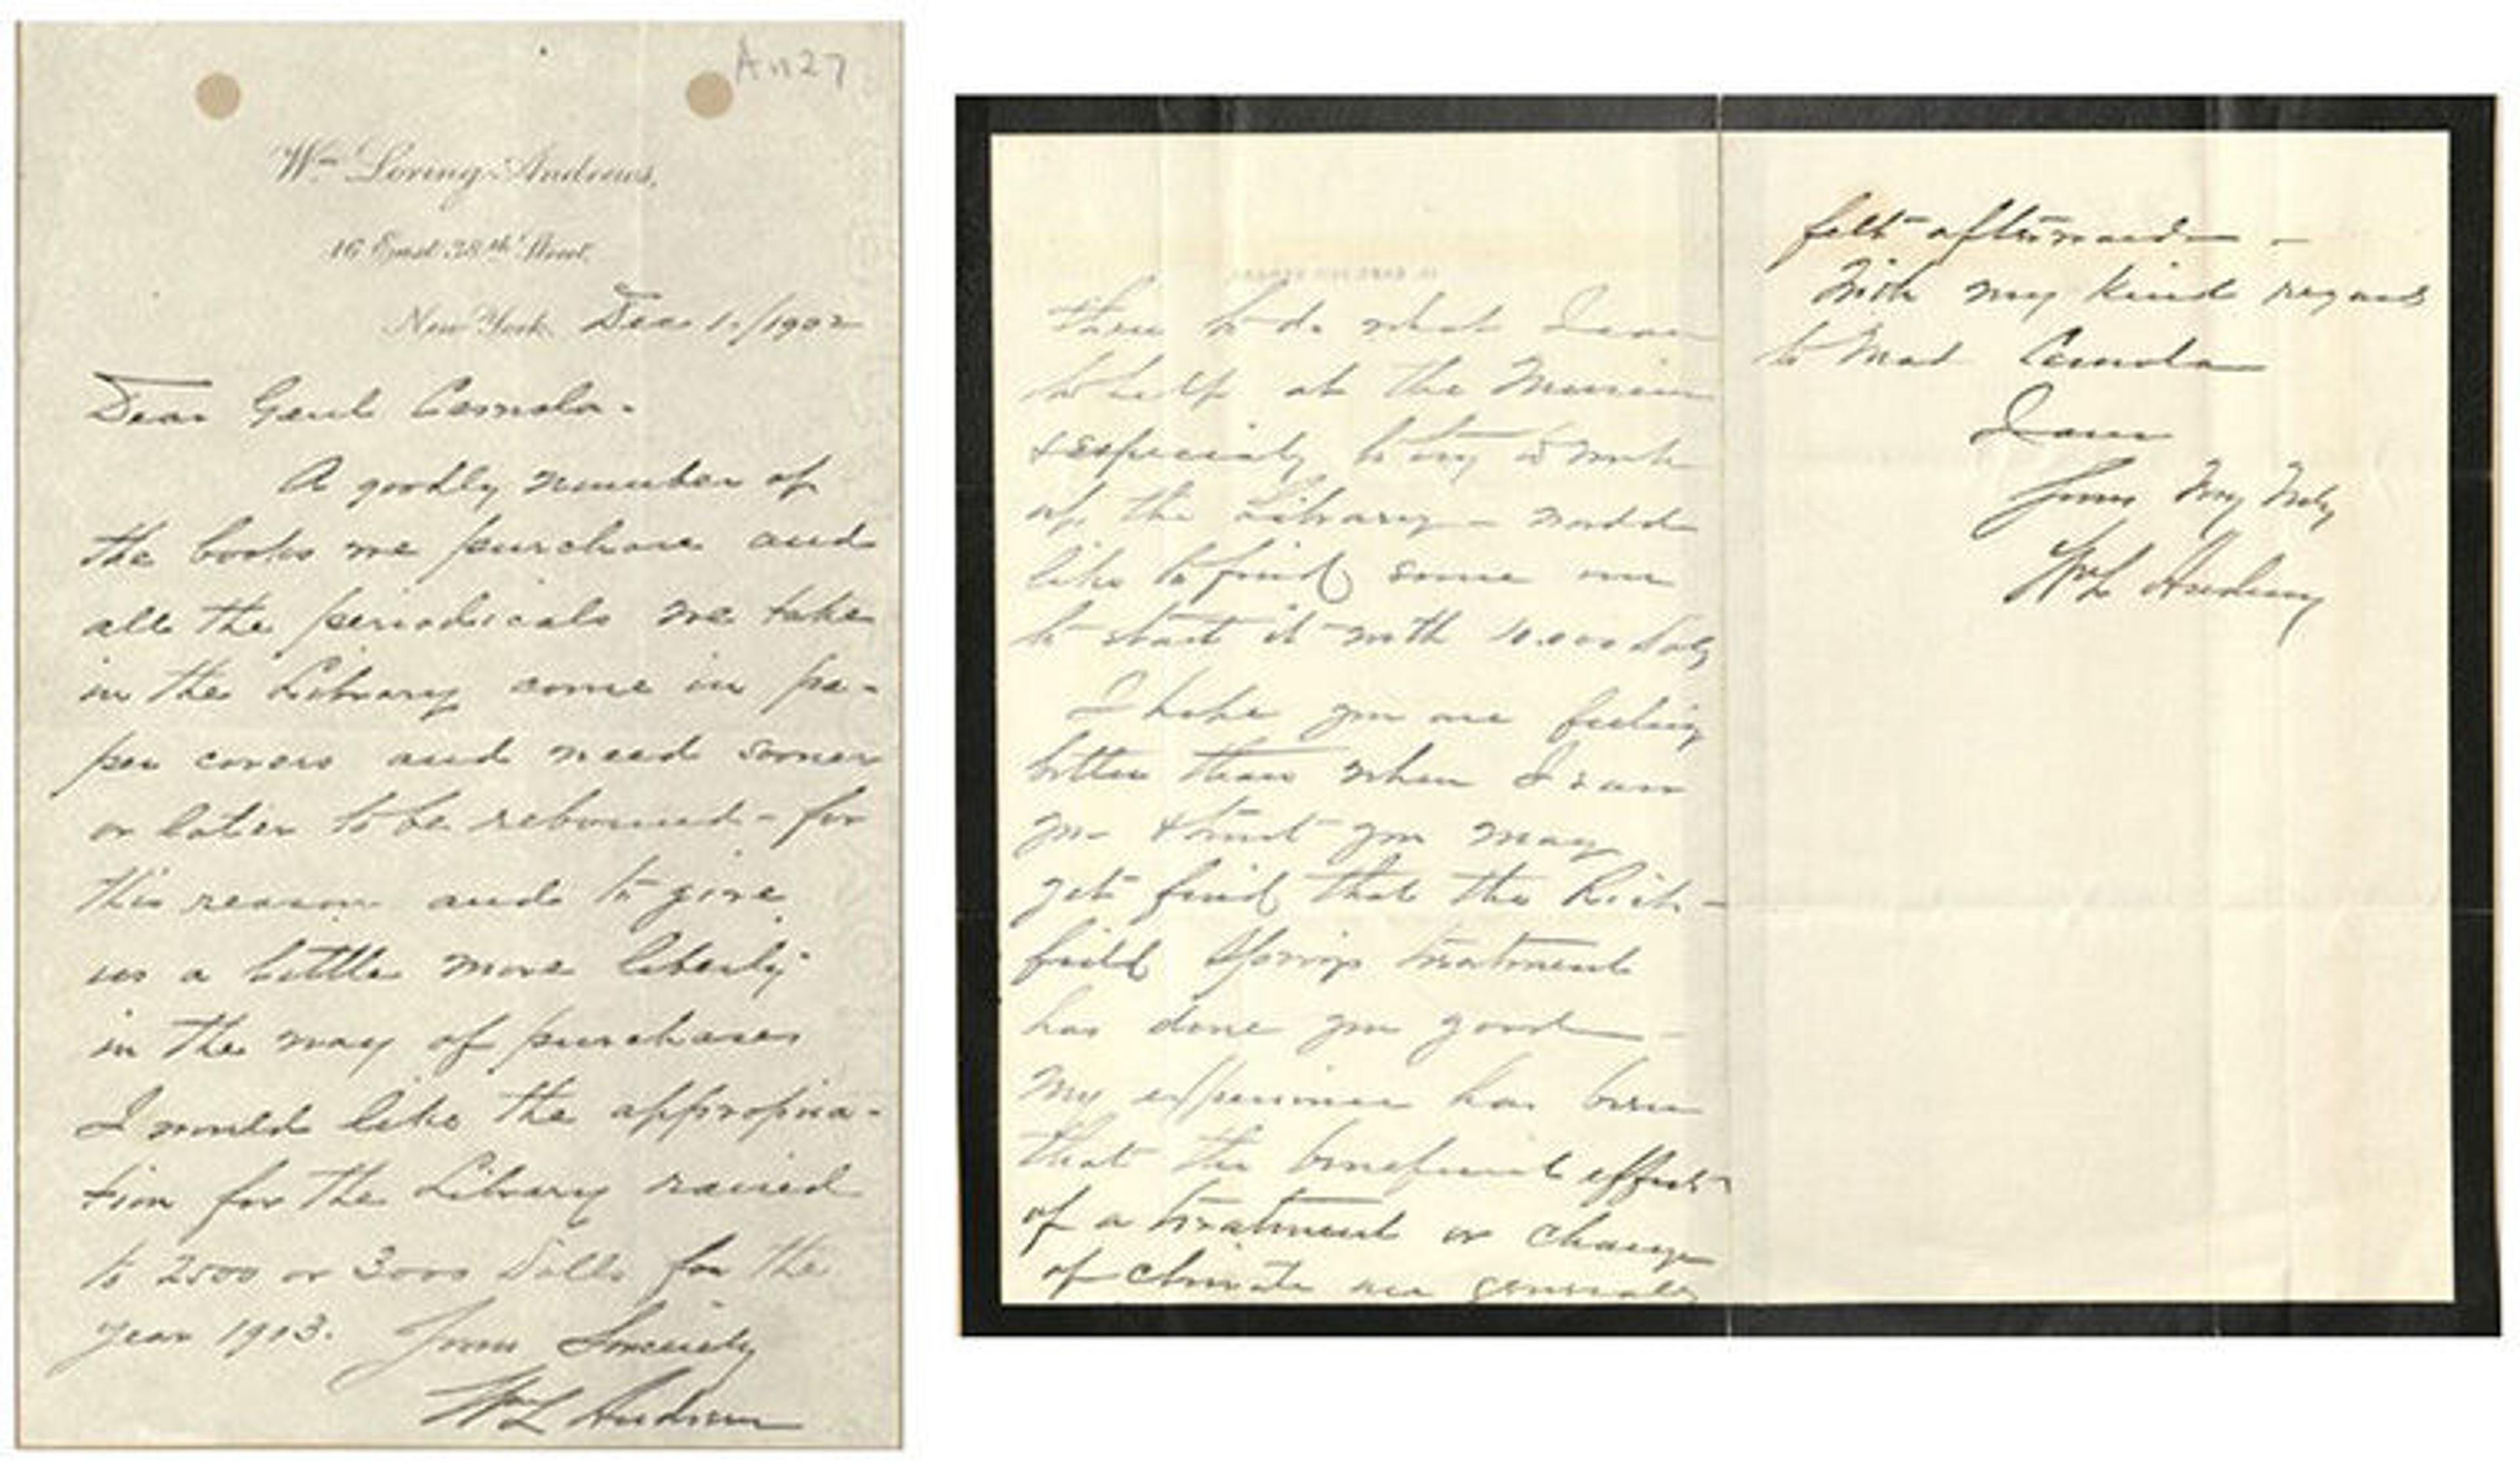 An27
Wm Loring Andrews,
16 East 38th Street,
New York, Dec 1./1902
Dear Genl Cesnola.
A goodly number of
the books we purchase and
all the periodicals we take
in the Library come in pa-
per covers and need sooner
or later to be rebound - for
this reason and to give
us a little more liberty
in the way of purchases
I would like the appropria-
tion for the Library raised
to 2500 or 3000 Dolls for the
year 1903. Yours Sincerely
Wm L Andrews
then to do what I can
to help at the Museum
& especially to try & 
up the Library - would
like to find some one
to start it with 10.000 Dolls
I hope you are feeling
better than when I saw
you & trust you may
yet find that the Rich-
field Springs treatment
has done you good -
My experience has been
that the beneficial effects
of a treatment or change
of climate are generally
felt afterwards -
With my kind regards
to Mad Cesnola
I am
Yours Very Truly
Wm L Andrews